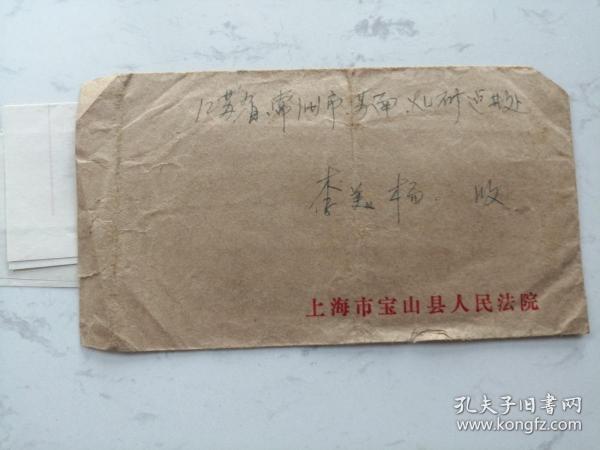 江苏省、常州市、苏南、
李美杨 收
上海市宝山县人民法院
孔夫子旧书网
www.kongfz.com